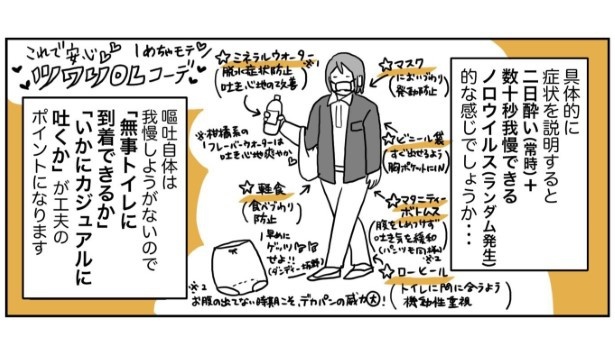 具体的に
症状を説明すると
二日酔い(常時)+
数十秒我慢できる
ノロウイルス(ランダム発生)
的な感じでしょうか・・・
これで安心♡♡めちゃモテ♡
ツワリOLコーデ♡
☆ミネラルウォーター※1
(脱水症状防止
吐き心地の改善)
※柑橘系の
フレーバーウォーターは
吐き心地爽やか
☆軽食
(食べづわり
防止)
早めに
ゲッツ
せよ!!
(ダンディー坂野)
☆マスク
(においづわり
発動防止)
☆ビニール袋
(すぐ出せるよう
胸ポケットにIN)
☆マタニティー
ボトムス
(腹をしめつけず
吐き気を緩和
(パンツも同様))※2
☆ローヒール
(トイレに間に合うよう
機動性重視)
※2
お腹の出てない時期こそ、デカパンの威力大!
嘔吐自体は
我慢しようがないので
「無事トイレに
到着できるか」
「いかにカジュアルに
吐くか」が工夫の
ポイントになります